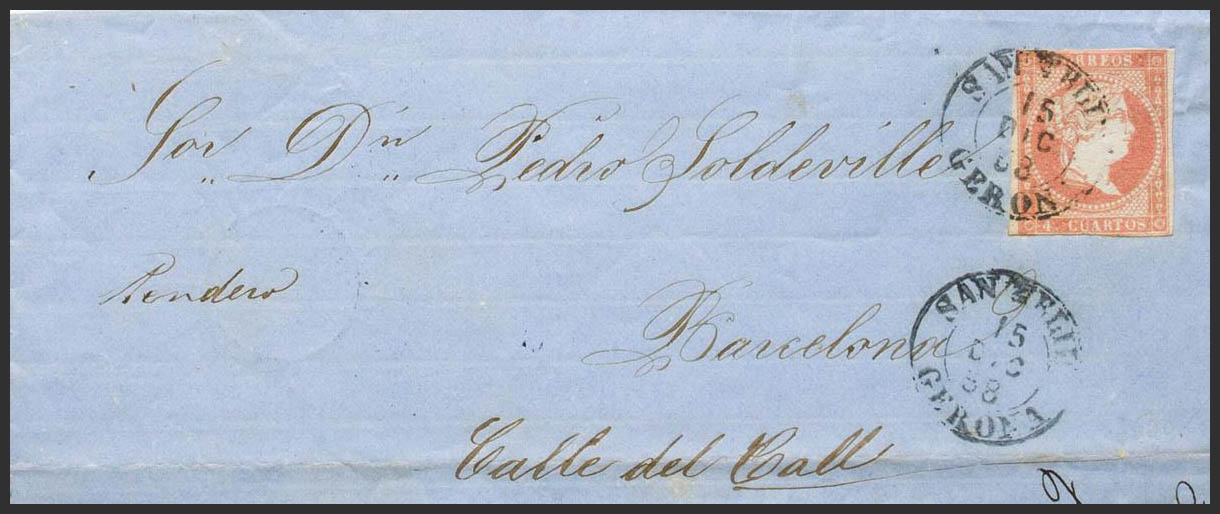 CORREOS
4 CUARTOS
SAN FELIU
15
DIC
58
GERONA
Sor Dn Pedro Soldeville
Tendero
Barcelona
SAN FELIU
15
DIC
58
GERONA
Calle del Call